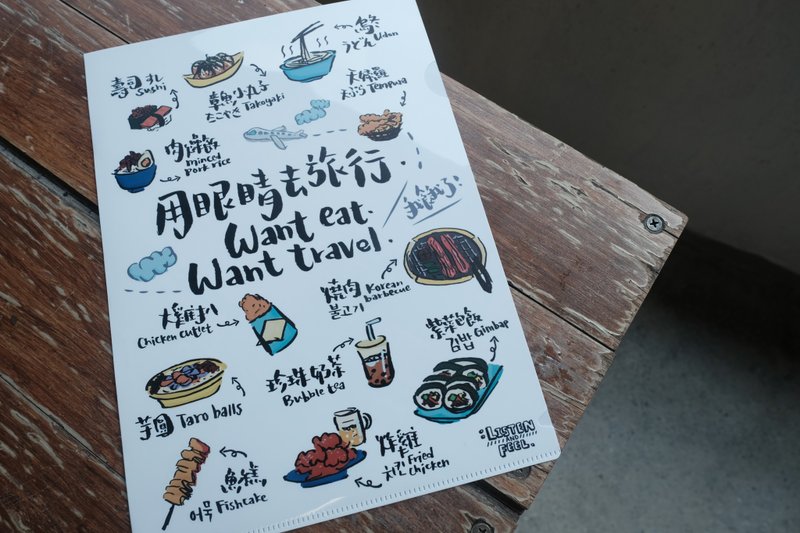 烏冬
うどん Udon
壽司 すし
Sushi
章魚小丸子
たこやき Takoyaki
天婦羅
天ぷら Tempura
肉燥飯
minced
Pork rice
用眼睛去旅行.
Want eat.
Want travel.
我餓了!
燒肉 Korean
불고기 barbecue
大雞扒
Chicken cutlet
紫菜包飯
김밥 Gimbap
珍珠奶茶
Bubble tea
芋圓 Taro balls
炸雞
치킨 Fried
Chicken
魚糕
어묵 Fishcake
:LISTEN
AND
FEEL.